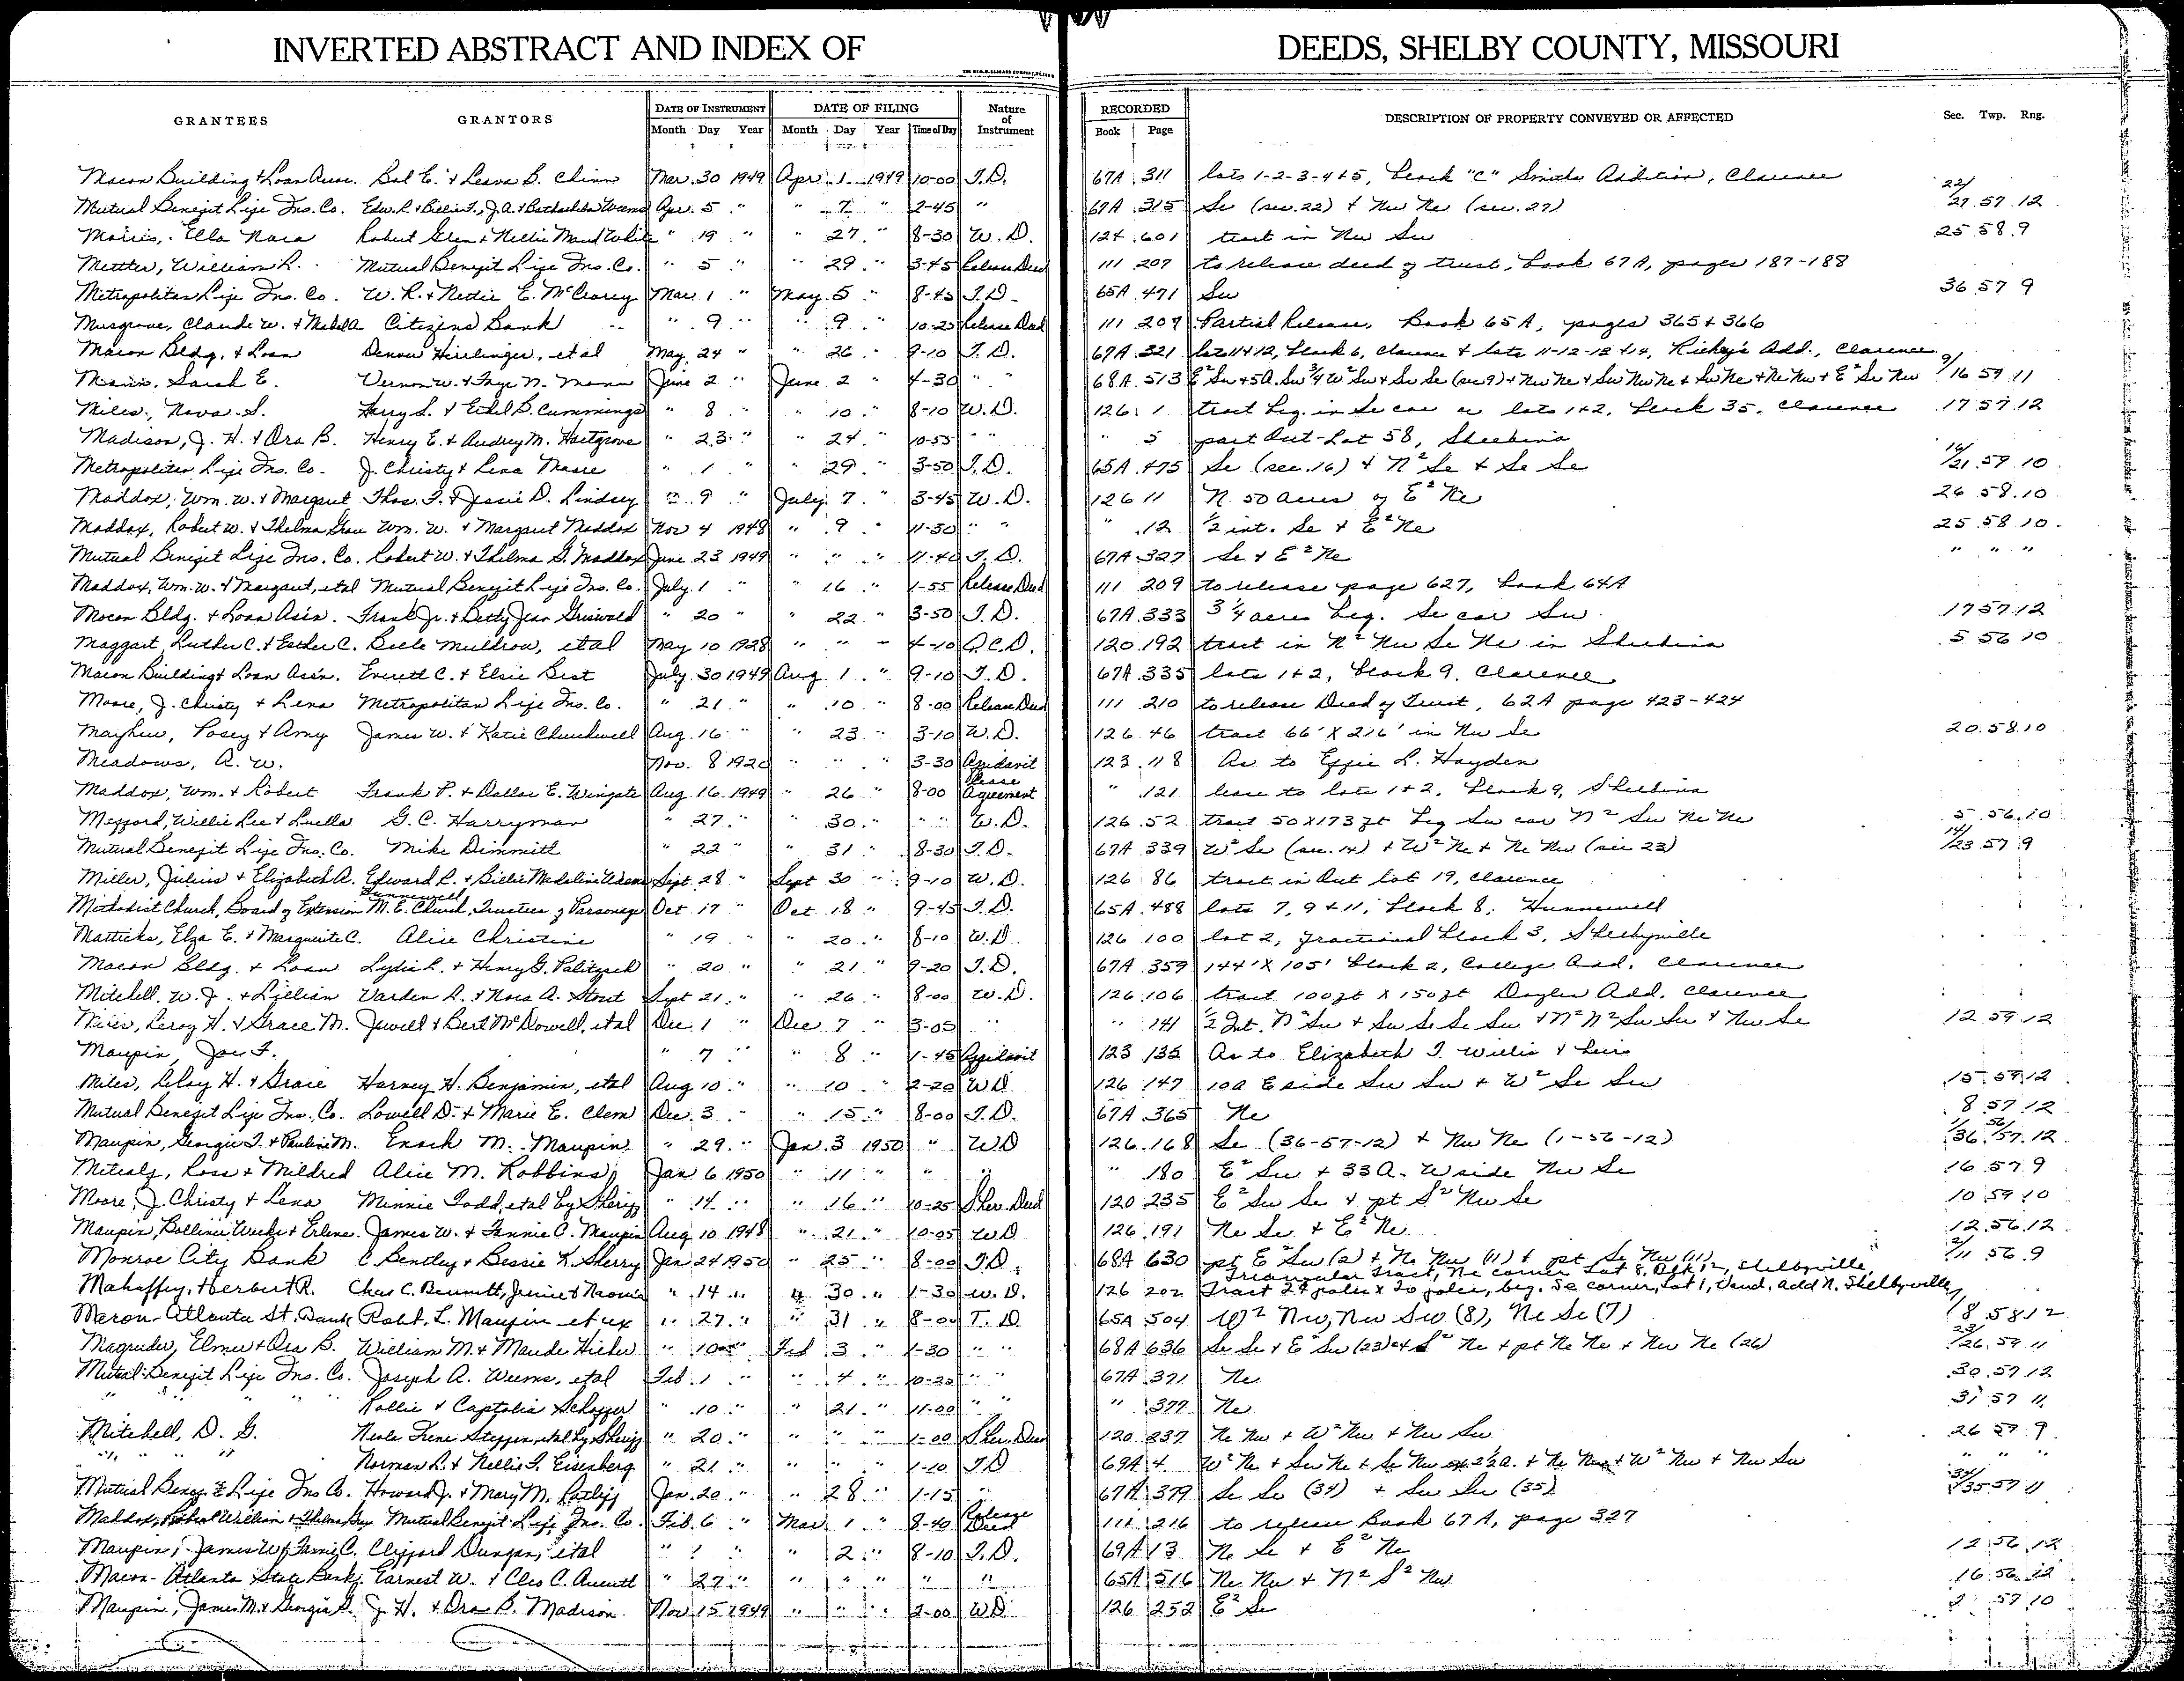 INVERTED ABSTRACT AND INDEX OF DEEDS, SHELBY COUNTY, MISSOURI
GRANTEES GRANTORS DATE OF INSTRUMENT DATE OF FILING Nature of Instrument RECORDED DESCRIPTION OF PROPERTY CONVEYED OR AFFECTED Sec. Twp. Rng.
Month Day Year Month Day Year Time of Day Book Page
Macon Building & Loan Assn. Bal E. & Leava B. Chinn Mar. 30 1949 Apr. 1 1949 10-00 T.D. 67A 311 lots 1-2-3-4+5, block "C" Smiths Addition, Clarence
Mutual Benefit Life Ins. Co. Edw. R. + Billie M., J.A. + Weems Apr. 5 " " 7 " 2-45 " 67A 315 Se (sec. 22) + Nw Ne (sec. 27) 22/27 57 12
Morris, Ella Nora Robert Glen + Nellie Maud White " 19 " " 27 " 8-30 W.D. 124 601 tract in Nw Sw 25 58 9
Mettler, William L. Mutual Benefit Life Ins. Co. " 5 " " 29 " 3-45 Release Deed 111 207 to release deed of trust, book 67A, pages 187-188
Metropolitan Life Ins. Co. W. R. + Nettie E. McCrorey Mar. 1 " May 5 " 8-45 T.D. 65A 471 Sw 36 57 9
Musgrove, Claude W. + Mabel A Citizens Bank " 9 " " 9 " 10-25 Release Deed 111 209 Partial Release. Book 65A, pages 365 + 366
Macon Bldg. + Loan Denver Hirlinger, et al May 24 " " 26 " 9-10 T.D. 67A 321 lots 11+12, block 6, Clarence + lots 11-12-13+14, Richey's Add., Clarence
Mann, Sarah E. Vernon W. + Faye N. Mann June 2 " June 2 " 4-30 " " 68A 513 E² Sw + 5A. Sw ¾ W² Sw + Sw Se (sec 9) + Nw Ne + Sw Nw Ne + Sw Ne + Ne Nw + E² Se Nw 9/16 59 11
Miles, Nova S. Harry S. + Ethel B. Cummings " 8 " " 10 " 8-10 W.D. 126 1 tract beg. in Se cor lots 1+2, block 35, Clarence 17 57 12
Madison, J. H. + Ora B. Henry E. + Audrey M. Hartgrove " 23 " " 24 " 10-55 " " " 5 part Out-Lot 58, Shelbina
Metropolitan Life Ins. Co. J. Christy + Lena Moore " 1 " " 29 " 3-50 T.D. 65A 475 Se (sec. 16) + N² Se + Se Se 16/21 59 10
Maddox, Wm. W. + Margaret Thos. F. + Jessie D. Lindsey " 9 " July 7 " 3-45 W.D. 126 11 N. 50 acres of E² Ne 26 58 10
Maddox, Robert W. + Thelma Grace Wm. W. + Margaret Maddox Nov 4 1948 " 9 " 11-30 " " " 12 ½ int. Se + E² Ne 25 58 10
Mutual Benefit Life Ins. Co. Robert W. + Thelma G. Maddox June 23 1949 " " " 11-40 T.D. 67A 327 Se + E² Ne " " "
Maddox, Wm. W. + Margaret, et al Mutual Benefit Life Ins. Co. July 1 " " 16 " 1-55 Release Deed 111 209 to release page 627, book 64A
Macon Bldg. + Loan Ass'n. Frank Jr. + Betty Jean Griswold " 20 " " 22 " 3-50 T.D. 67A 333 3¼ acres beg. Se cor Sw 17 57 12
Maggart, Luther C. + Esther C. Belle Muldrow, et al May 10 1928 " " " 4-10 Q.C.D. 120 192 tract in N² Nw Se Ne in Shelbina 5 56 10
Macon Building + Loan Ass'n. Everett C. + Elsie Best July 30 1949 Aug. 1 " 9-10 T.D. 67A 335 lots 1+2, block 9, Clarence
Moore, J. Christy + Lena Metropolitan Life Ins. Co. " 21 " " 10 " 8-00 Release Deed 111 210 to release Deed of Trust, 62A page 423-424
Mayhew, Posey + Amy James W. + Katie Churchwell Aug. 16 " " 23 " 3-10 W.D. 126 46 tract 66' X 216' in Nw Se 20 58 10
Meadows, A. W. Nov. 8 1920 " " " 3-30 Affidavit 123 118 As to Effie L. Hayden
Maddox, Wm. + Robert Frank P. + Dallas E. Wingate Aug. 16 1949 " 26 " 8-00 Lease Agreement " 121 lease to lots 1+2, block 9, Shelbina
Mefford, Willie Lee + Luella G. C. Harryman " 27 " " 30 " " " W.D. 126 52 tract 50 X 173 ft beg Sw cor N² Sw Ne Ne 5 56 10
Mutual Benefit Life Ins. Co. Mike Dimmitt " 22 " " 31 " 8-30 T.D. 67A 339 W² Se (sec. 14) + W² Ne + Ne Nw (sec 23) 14/23 57 9
Miller, Julius + Elizabeth A. Edward R. + Billie Madeline Weems Sept. 28 " Sept 30 " 9-10 W.D. 126 86 tract in Out lot 19, Clarence
Methodist Church, Board of Extension Hunnewell M.E. Church, Trustees of Parsonage Oct 17 " Oct 18 " 9-45 T.D. 65A 488 lots 7, 9 + 11, block 8, Hunnewell
Matticks, Elza E. + Marguerite C. Alice Christine " 19 " " 20 " 8-10 W.D. 126 100 lot 2, fractional block 3, Shelbyville
Macon Bldg. + Loan Lydia L. + Henry G. Palitzsch " 20 " " 21 " 9-20 T.D. 67A 359 144' X 105' block 2, College Add. Clarence
Mitchell, W. J. + Lillian Varden R. + Nora A. Stout Sept 21 " " 26 " 8-00 W.D. 126 106 tract 100 ft X 150 ft Doyles Add. Clarence
Miles, Leroy H. + Grace M. Jewell + Bert McDowell, et al Dec. 1 " Dec 7 " 3-05 " " 141 ½ Int. N² Sw + Sw Se Se Sw + N² N² Sw Sw + Nw Se 12 59 12
Maupin, Joe F. " 7 " " 8 " 1-45 Affidavit 123 135 As to Elizabeth T. Willis + heirs
Miles, LeRoy H. + Grace Harvey H. Benjamin, et al Aug 10 " " 10 " 2-20 W.D. 126 147 10a E side Sw Sw + W² Se Sw 15 59 12
Mutual Benefit Life Ins. Co. Lowell D. + Marie E. Clem Dec. 3 " " 15 " 8-00 T.D. 67A 365 Ne 8 57 12
Maupin, Georgie T. + Pauline M. Enoch M. Maupin " 29 " Jan. 3 1950 " WD 126 168 Se (36-57-12) + Nw Ne (1-56-12) 1/36 56/57 12
Metcalf, Ross + Mildred Alice M. Robbins Jan 6 1950 " 11 " " " " 180 E² Sw + 33 A. W side Nw Se 16 57 9
Moore, J. Christy + Lena Minnie Todd, et al by Sheriff " 14 " " 16 " 10-25 Sher. Deed 120 235 E² Sw Se + pt S² Nw Se 10 59 10
Maupin, Rollince Weeks + Erlene James W. + Fannie C. Maupin Aug 10 1948 " 21 " 10-05 WD 126 191 Ne Se + E² Ne 12 56 12
Monroe City Bank C. Bentley + Bessie K. Sherry Jan 24 1950 " 25 " 8-00 T.D. 68A 630 pt E² Sw (2) + Ne Nw (11) + pt Se Nw (11) 2/11 56 9
Triangular tract, Ne corner Lot 8, Blk 12, Shelbyville,
Mahaffey, Herbert R. Chas C. Bennett, Jennie + Naomi " 14 " " 30 " 1-30 W.D. 126 202 Tract 24 poles x 20 poles, beg. Se corner, Lot 1, Vand. add N. Shelbyville
Macon-Atlanta St. Bank Robt. L. Maupin et ux " 27 " " 31 " 8-00 T.D. 65A 504 W² Nw, Nw Sw (8), Ne Se (7) 7/8 58 12
Magruder, Elmer + Ora B. William M. + Maude Hicher " 10 " Feb 3 " 1-30 " " 68A 636 Se Se + E² Sw (23) + S² Ne + pt Ne Ne + Nw Ne (26) 23/26 59 11
Mutual Benefit Life Ins. Co. Joseph A. Weems, et al Feb. 1 " " 4 " 10-30 " " 67A 371 Ne 30 57 12
" " " " Rollie + Captolia Schaffer " 10 " " 21 " 11-00 " " " 377 Ne 31 57 11
Mitchell, D. G. Neola Irene Steffen, et al by Sheriff " 20 " " " " 1-00 Sher. Deed 120 237 Ne Nw + W² Nw + Nw Sw 26 59 9
" " " Norman L. + Nellie F. Eisenberg " 21 " " " " 1-10 T.D. 69A 4 W² Ne + Sw Ne + Se Nw ex 2½a. + Ne Nw + W² Nw + Nw Sw " " "
Mutual Benefit Life Ins Co. Howard J. + Mary M. Ratliff Jan. 20 " " 28 " 1-15 " 67A 379 Se Se (34) + Sw Sw (35) 34/35 57 11
Maddox, Robert William + Thelma Gay Mutual Benefit Life Ins. Co. Feb. 6 " Mar. 1 " 8-40 Release Deed 111 216 to release Book 67A, page 327
Maupin, James W., Fannie C. Clifford Dungan, et al " 1 " " 2 " 8-10 T.D. 69A 13 Ne Se + E² Ne 12 56 12
Macon-Atlanta State Bank Earnest W. + Cleo C. Averett " 27 " " " " " " 65A 516 Ne Nw + N² S² Nw 16 56 12
Maupin, James M. + Georgia G. J. H. + Ora B. Madison Nov. 15 1949 " " " 2-00 WD 126 252 E² Se 2 57 10